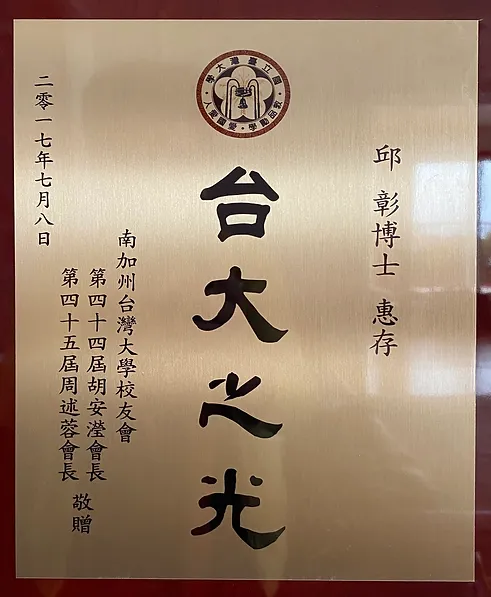 國立臺灣大學
敦品勵學・愛國愛人
邱彰博士 惠存
台大之光
南加州台灣大學校友會
第四十四屆胡安瀅會長
第四十五屆周述蓉會長
敬贈
二零一七年七月八日